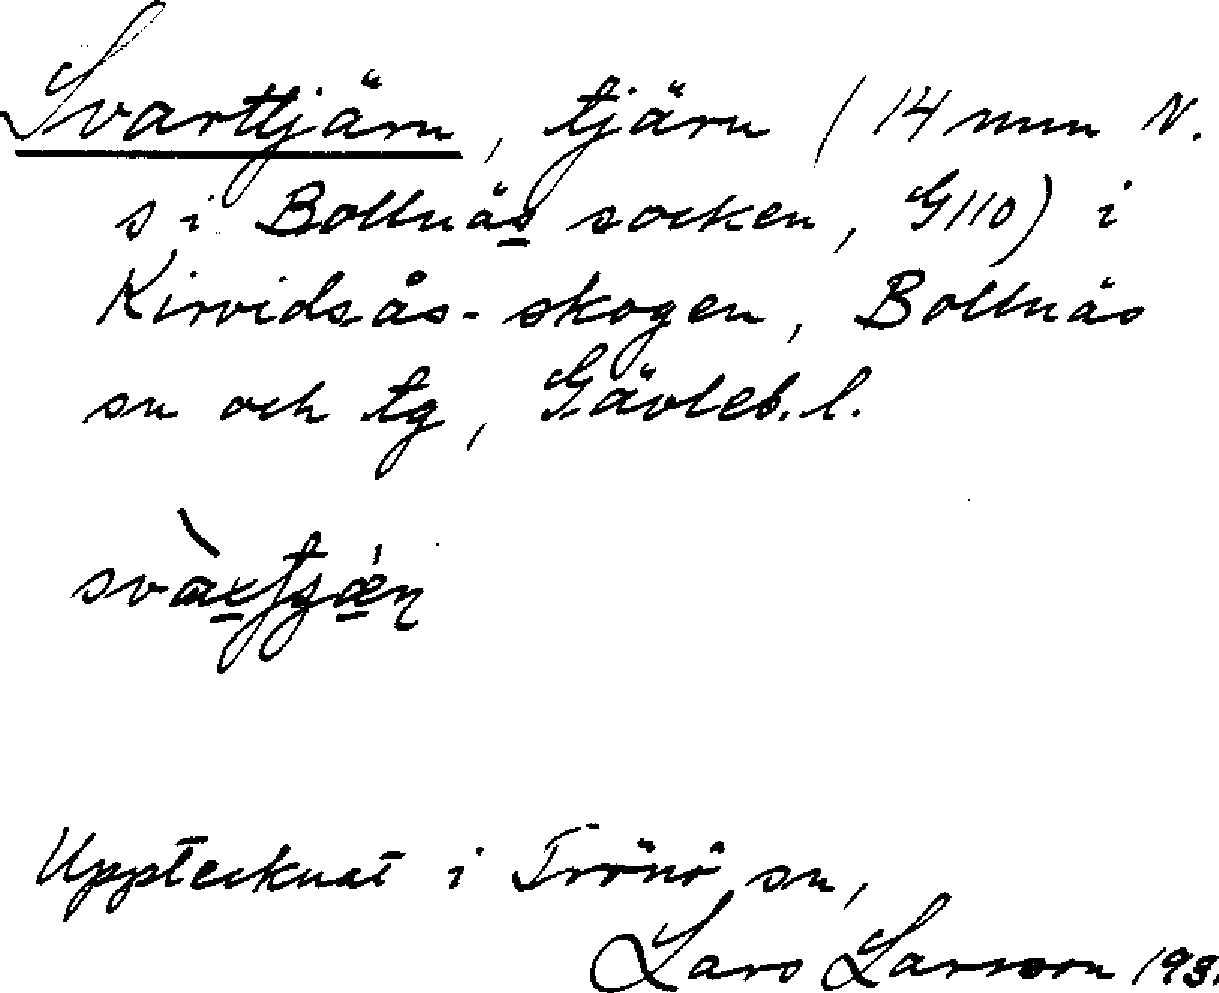 Svarttjärn, tjärn (14 mm N.
s i Bollnäs socken, G110) i
Kirvidsås-skogen, Bollnäs
sn och tg, Gävleb. l.
Upptecknat i Trönö sn,
Lars Larsson 193.